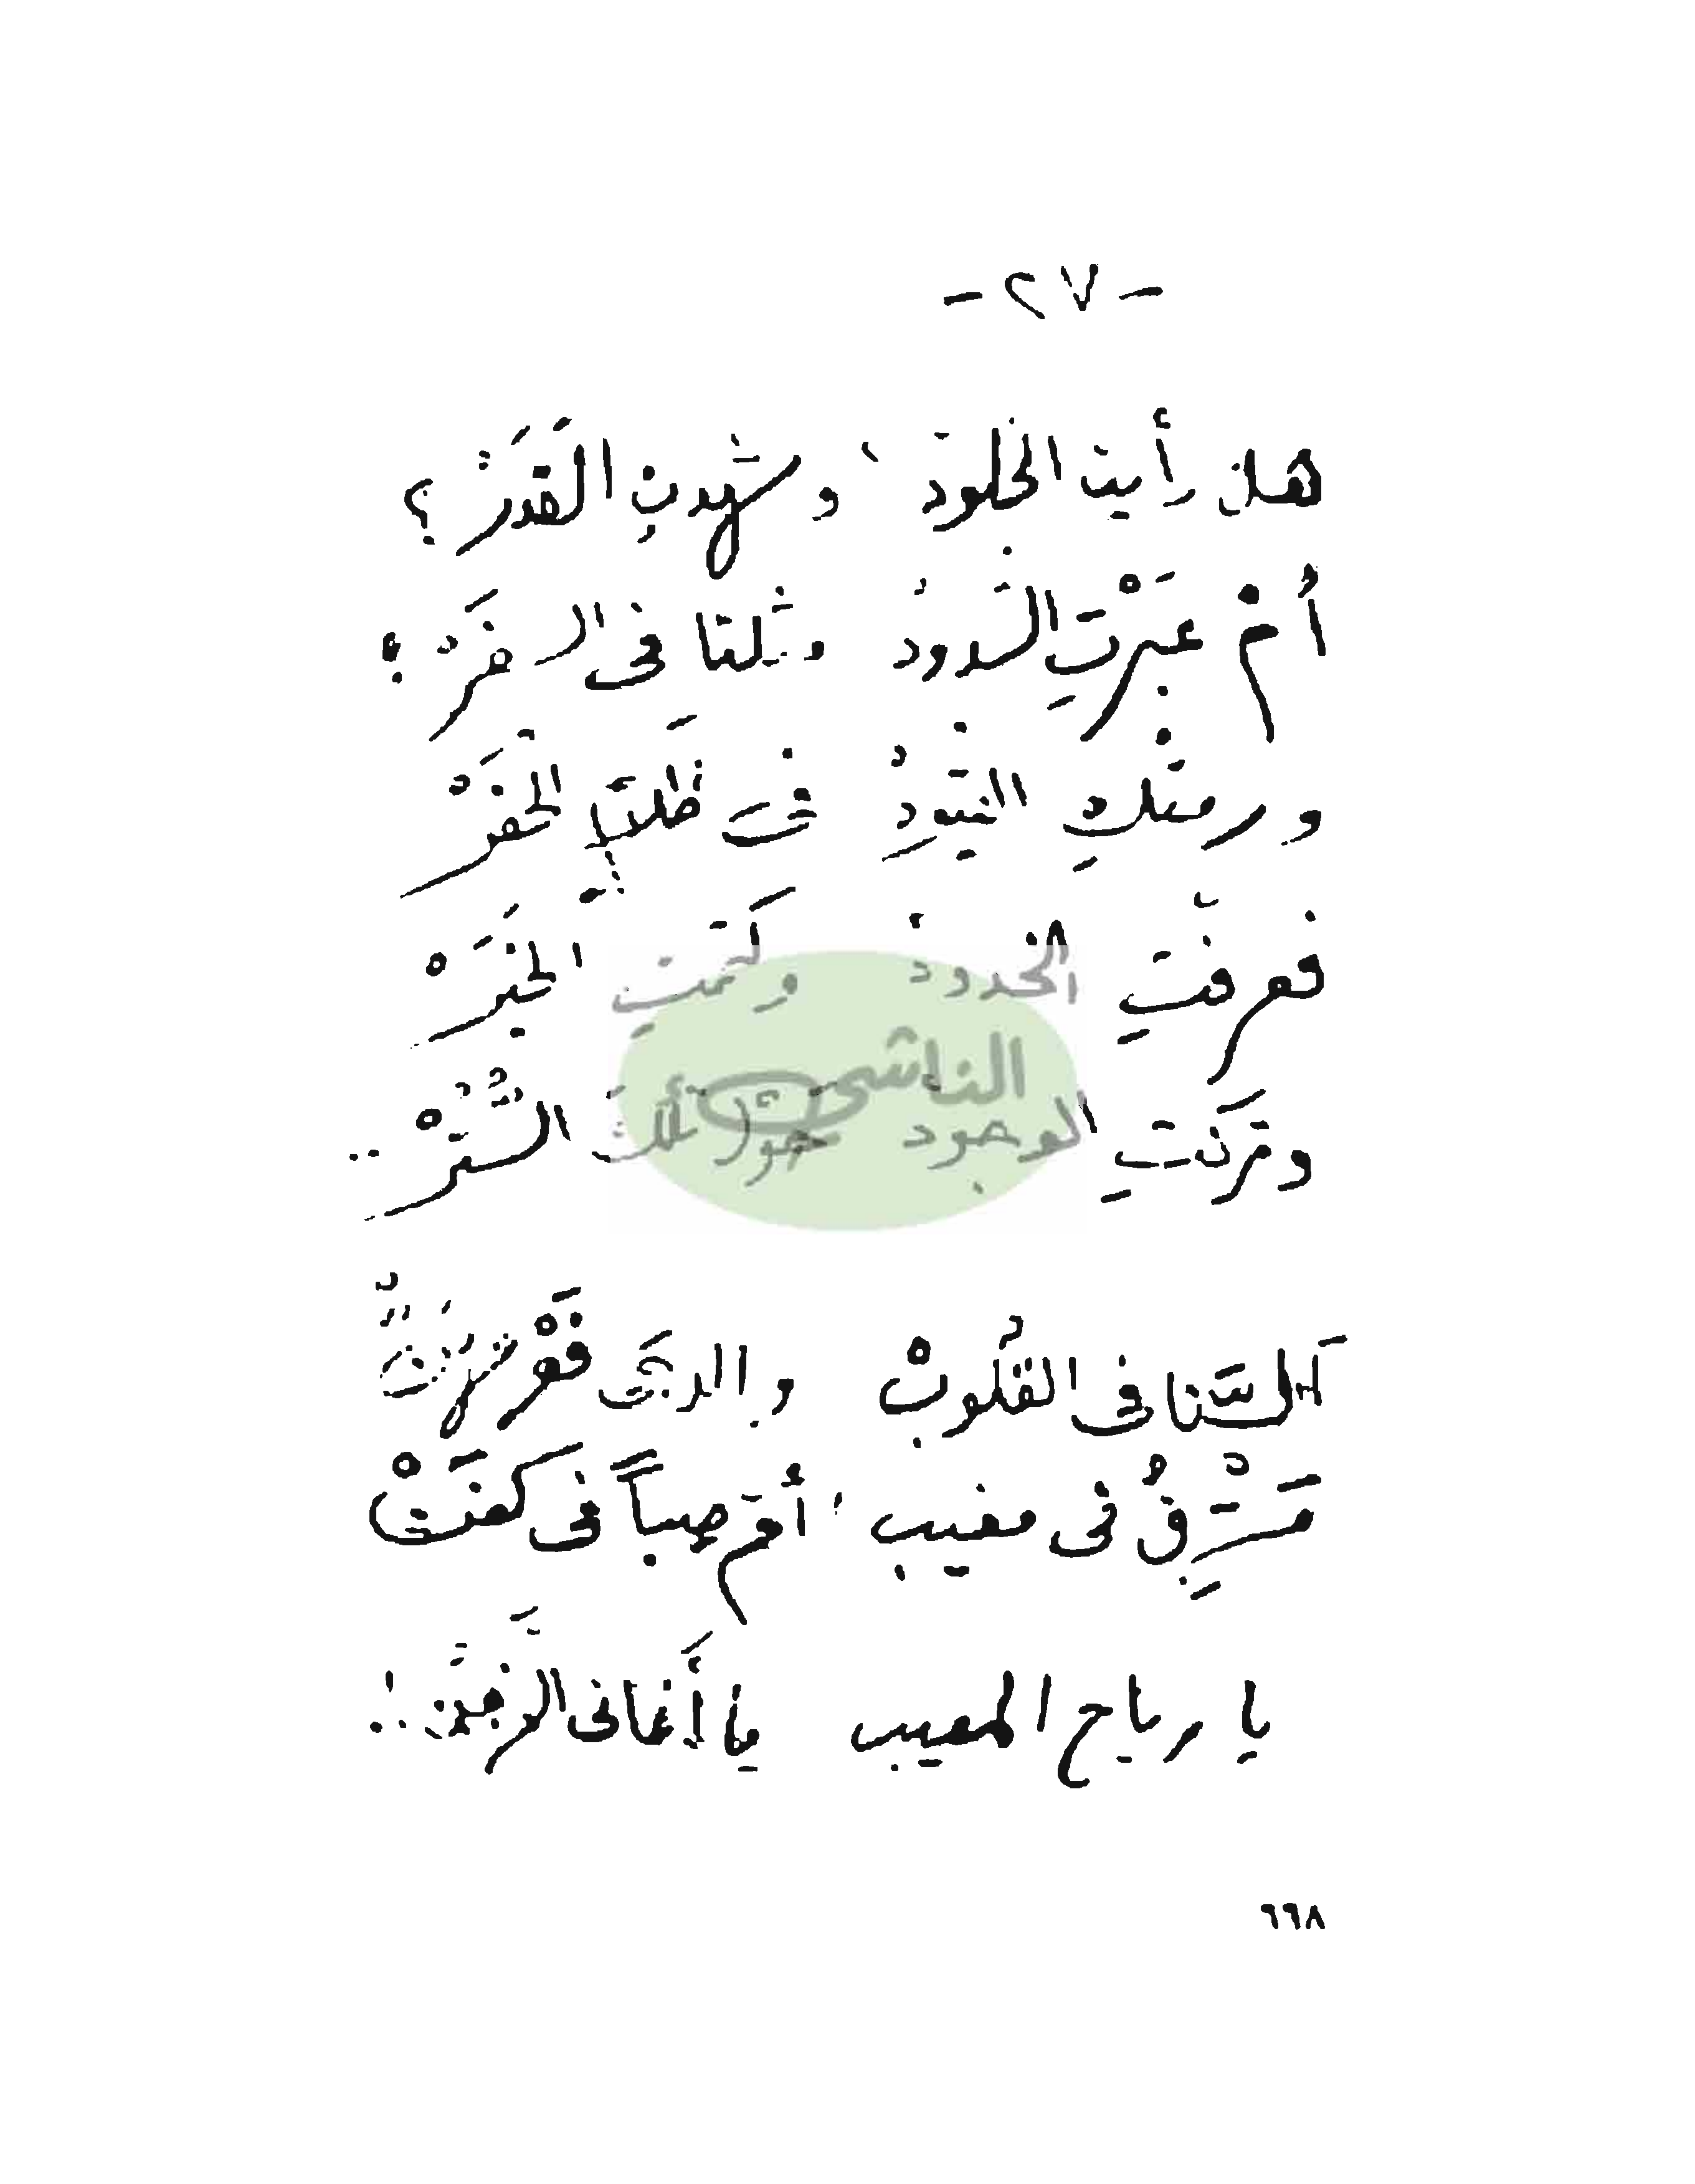 - ٢٧ -
هل رأيت الخلودَ ، وشهدتِ القَدَرْ ؟
أمْ عَبَرْتِ السُّدودْ مثلنا فى ؟
ورمتْكِ القيودْ فى ظلامِ الحُفَرْ
فعرفتِ الحدودْ وكتمتِ الخَبَرْ
وتركتِ الوجود السُّتُرْ ..
الناشى
آلسَّنا فى القلوبْ والدجى فَوْقَهُنّْ
مَشْرِقٌ فى مغيب ، أم صِباً فى كفَنْ
يا رياح المغيب يا أغانى الزَّمَنْ !..
٦٦٨